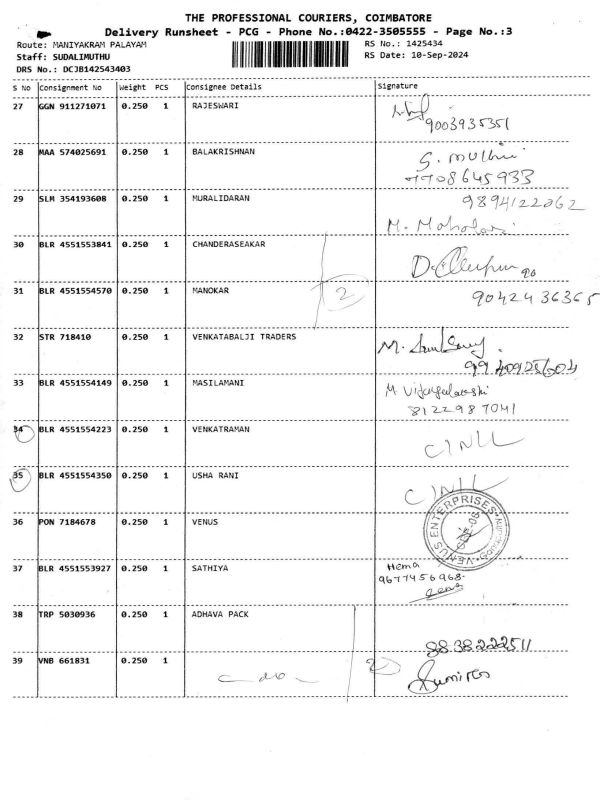 THE PROFESSIONAL COURIERS, COIMBATORE
Delivery Runsheet - PCG - Phone No.:0422-3505555 - Page No.:3
Route: MANIYAKRAM PALAYAM
RS No.: 1425434
Staff: SUDALIMUTHU
RS Date: 10-Sep-2024
DRS No.: DCJB142543403
S No Consignment No Weight PCS Consignee Details Signature
27 GGN 911271071 0.250 1 RAJESWARI
9003935351
28 MAA 574025691 0.250 1 BALAKRISHNAN
7708645933
29 SLM 354193608 0.250 1 MURALIDARAN
9894122062
30 BLR 4551553841 0.250 1 CHANDERASEAKAR
31 BLR 4551554570 0.250 1 MANOKAR
2
9042436365
32 STR 718410 0.250 1 VENKATABALJI TRADERS
33 BLR 4551554149 0.250 1 MASILAMANI
8122987041
34 BLR 4551554223 0.250 1 VENKATRAMAN
35 BLR 4551554350 0.250 1 USHA RANI
36 PON 7184678 0.250 1 VENUS
VENUS ENTERPRISES
37 BLR 4551553927 0.250 1 SATHIYA
Hema
9677456968
38 TRP 5030936 0.250 1 ADHAVA PACK
39 VNB 661831 0.250 1
2